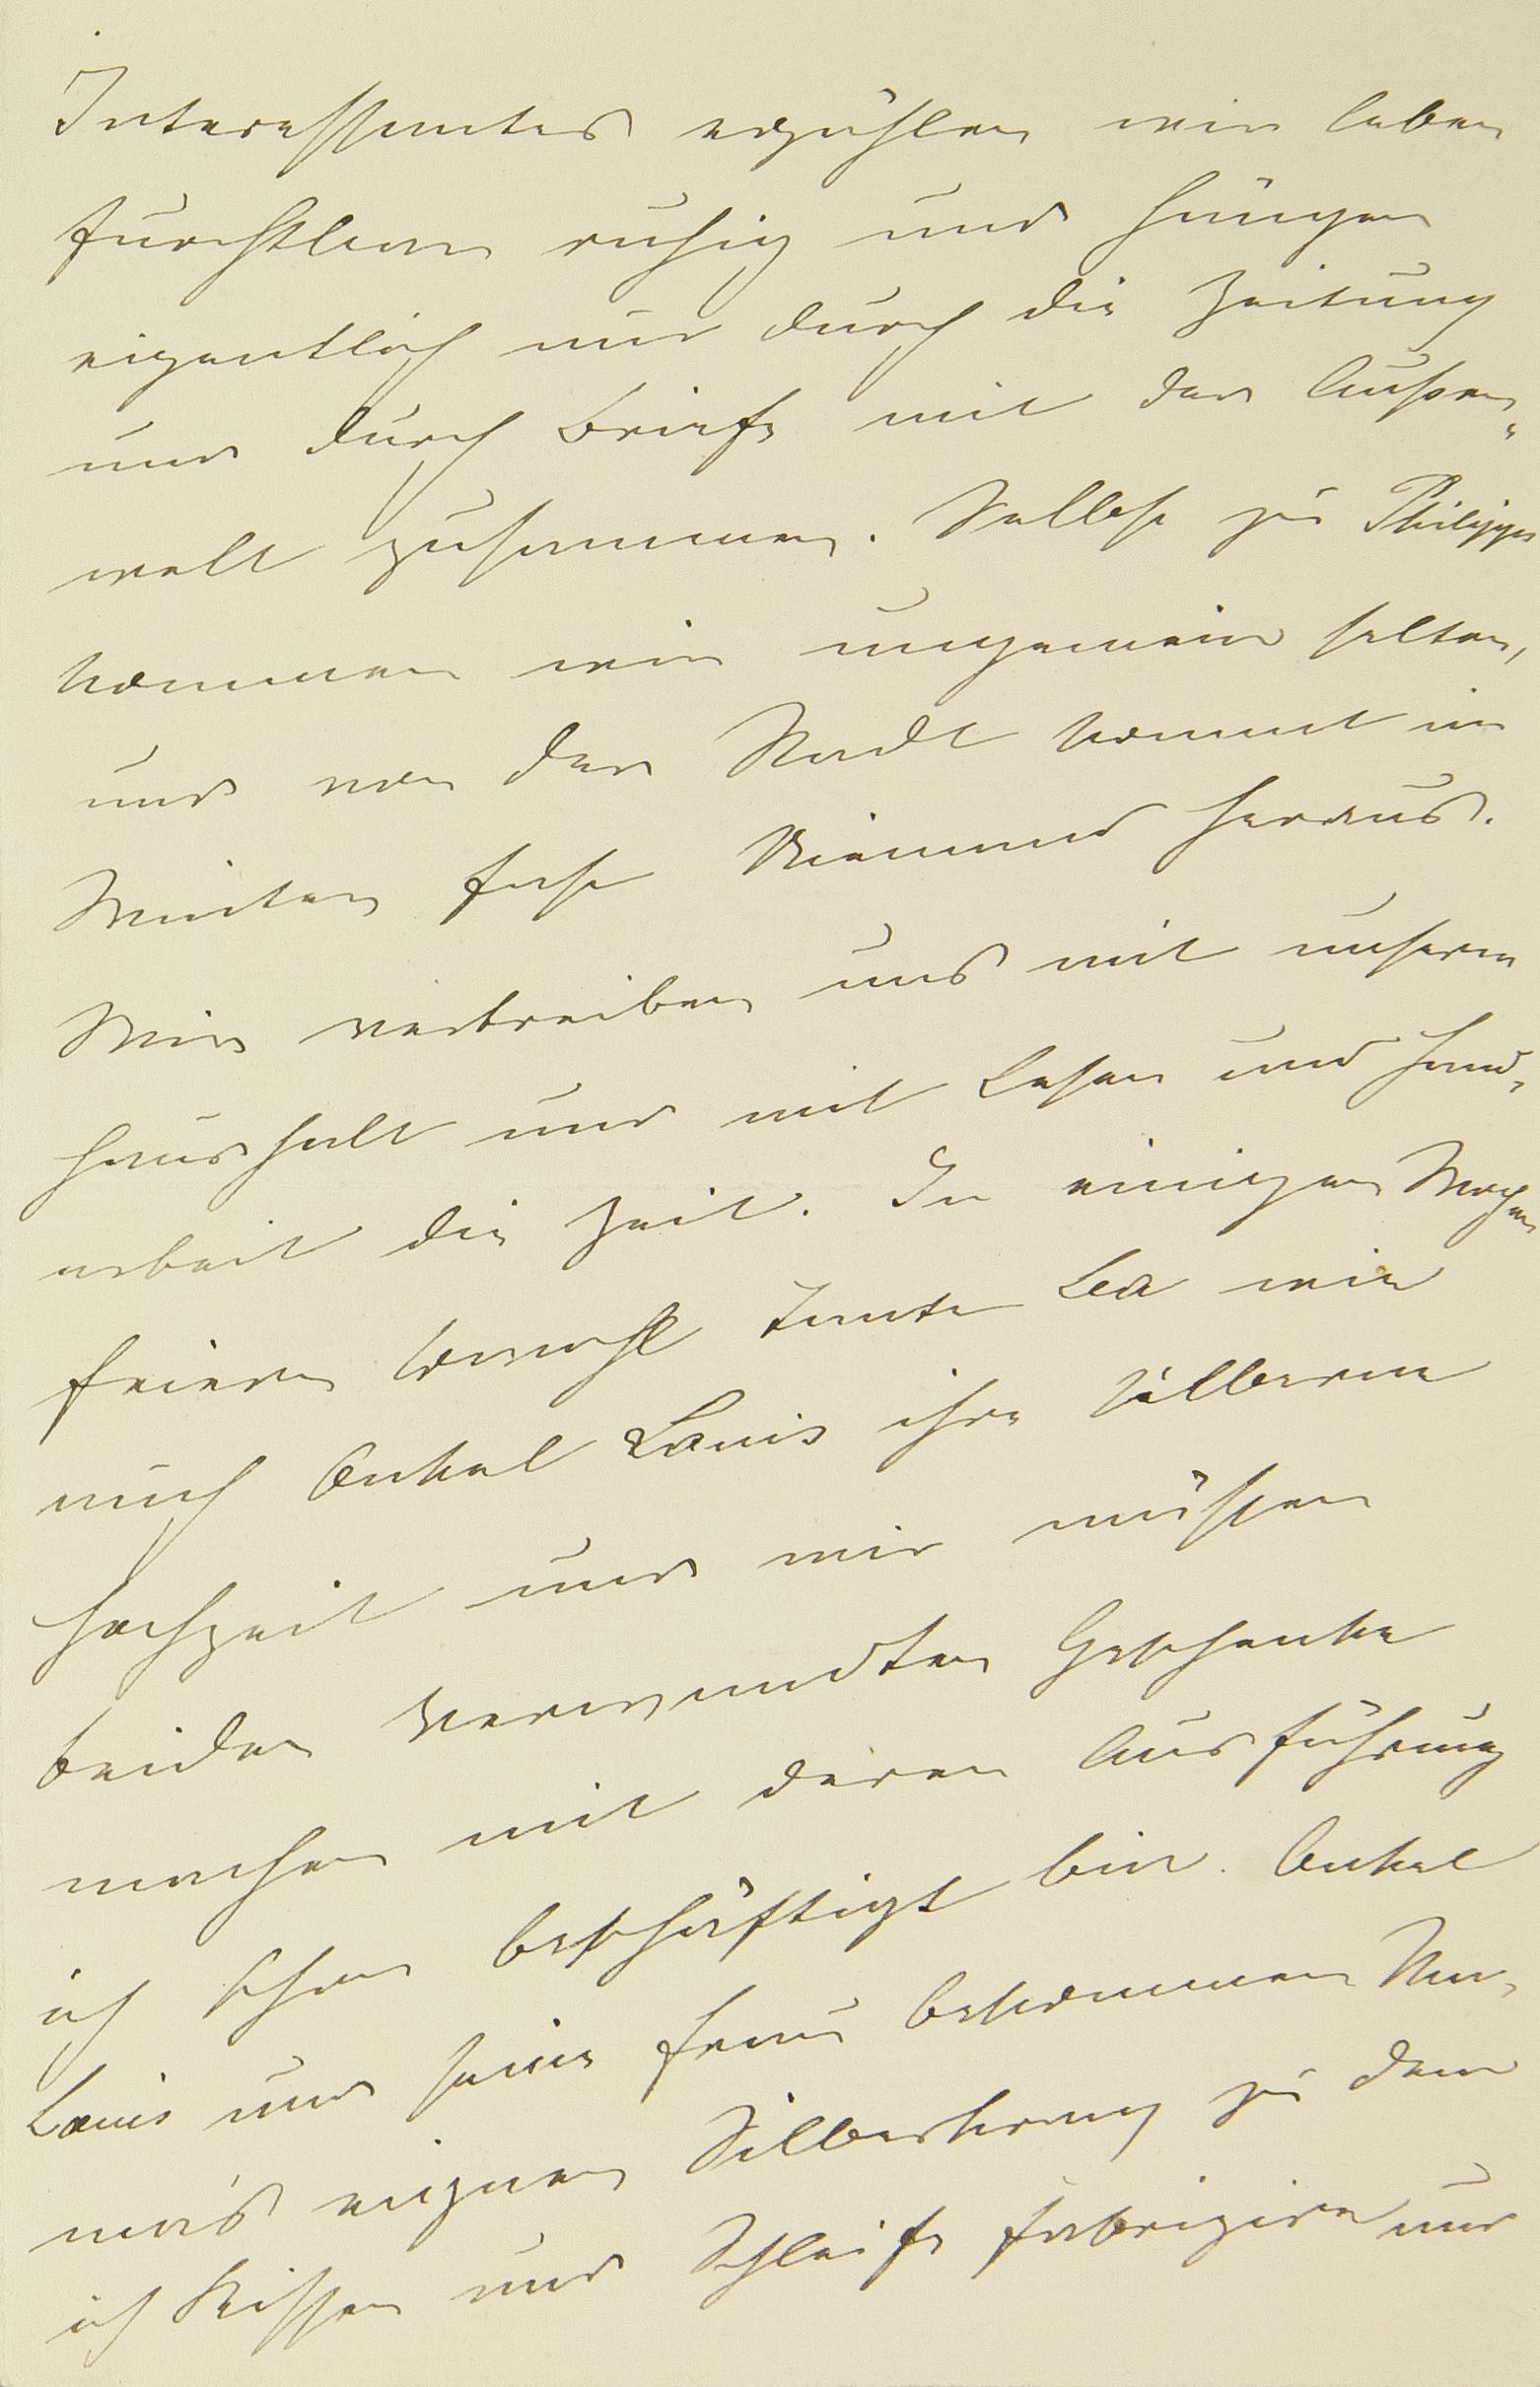 Interessantes erzählen wir leben
furchtbar ruhig und hängen
eigentlich nur durch die Zeitung
und durch Briefe mit der Außen-
welt zusammen. Selbst zu Philipps
kommen wir ungemein selten,
und von der Stadt kommt im
Winter fast Niemand heraus.
Wir vertreiben uns mit unserm
Haushalt und mit Lesen und Hand-
arbeit die Zeit. In einigen Wochen
feiern sowohl Tante Lea wie
auch Onkel Louis ihre silberne
Hochzeit und wir müssen
beiden Verwandten Geschenke
machen mit deren Ausführung
ich schon beschäftigt bin. Onkel
Louis und seine Frau bekommen Ma-
ma's eignen Silberkranz zu dem
ich Kissen und Schleife fabrizire und